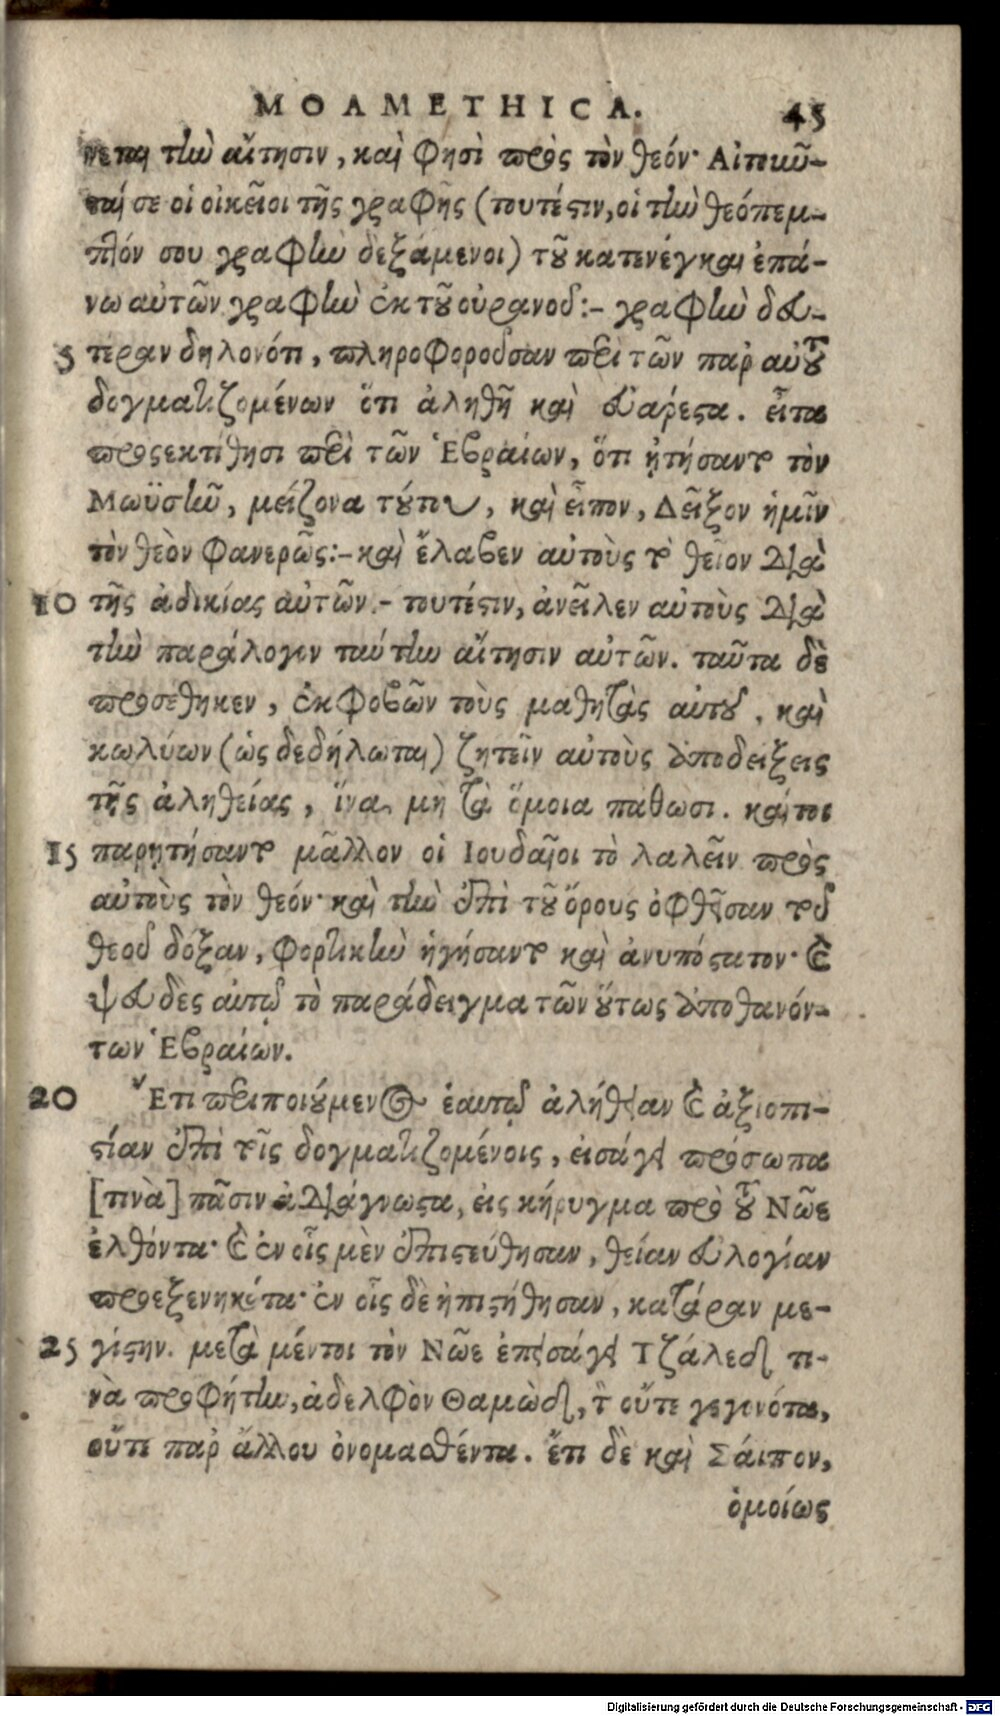 MOAMETHICA. 45
νεται τὴν αἴτησιν, καὶ φησὶ πρὸς τὸν θεόν· Αἰτοῦν-
ταί σε οἱ οἰκεῖοι τῆς γραφῆς (τουτέστιν, οἱ τὴν θεόπεμ-
πτόν σου γραφὴν δεξάμενοι) τοῦ κατενέγκαι ἐπά-
νω αὐτῶν γραφὴν ἐκ τοῦ οὐρανοῦ:– γραφὴν δευ-
5 τέραν δηλονότι, πληροφοροῦσαν περὶ τῶν παρ αὐτοῦ
δογματιζομένων ὅτι ἀληθῆ καὶ εὐάρεστα. εἶτα
προςεκτίθησι περὶ τῶν Ἑβραίων, ὅτι ᾐτήσαντο τὸν
Μωϋσῆν, μείζονα τούτου, καὶ εἶπον, Δεῖξον ἡμῖν
τὸν θεὸν φανερῶς:– καὶ ἔλαβεν αὐτοὺς τὸ θεῖον διὰ
10 τῆς ἀδικίας αὐτῶν.– τουτέστιν, ἀνεῖλεν αὐτοὺς διὰ
τὴν παράλογον ταύτην αἴτησιν αὐτῶν. ταῦτα δὲ
προσέθηκεν, ἐκφοβῶν τοὺς μαθητὰς αὐτοῦ, καὶ
κωλύων (ὡς δεδήλωται) ζητεῖν αὐτοὺς ἀποδείξεις
τῆς ἀληθείας, ἵνα μὴ τὰ ὅμοια πάθωσι. καίτοι
15 παρῃτήσαντο μᾶλλον οἱ Ιουδαῖοι τὸ λαλεῖν πρὸς
αὐτοὺς τὸν θεόν· καὶ τὴν ἐπὶ τοῦ ὄρους ὀφθεῖσαν τοῦ
θεοῦ δόξαν, φορτικὴν ἡγήσαντο καὶ ἀνυπόστατον· καὶ
ψευδὲς αὐτῷ τὸ παράδειγμα τῶν οὕτως ἀποθανόν-
των Ἑβραίων.
20 Ἔτι περιποιούμενος ἑαυτῷ ἀλήθειαν καὶ ἀξιοπι-
στίαν ἐπὶ τοῖς δογματιζομένοις, εἰσάγει πρόσωπα
[τινὰ] πᾶσιν ἀδιάγνωστα, εἰς κήρυγμα πρὸ τοῦ Νῶε
ἐλθόντα· καὶ ἐν οἷς μὲν ἐπιστεύθησαν, θείαν εὐλογίαν
προεξενηκότα· ἐν οἷς δὲ ἠπιστήθησαν, κατάραν με-
25 γίστην. μετὰ μέντοι τὸν Νῶε ἐπεισάγει Τζάλεδ τι-
νὰ προφήτην, ἀδελφὸν Θαμὼδ, τὸν οὔτε γεγονότα,
οὔτε παρ ἄλλου ὀνομασθέντα. ἔτι δὲ καὶ Σάιπον,
ὁμοίως
Digitalisierung gefördert durch die Deutsche Forschungsgemeinschaft - DFG